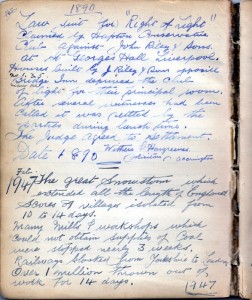 1890
Law suit for "Right of Light"
Carried by Hapton Conservative
Club Against John Riley & Sons.
At St Georges Hall Liverpool.
Houses built by J Riley & Sons opposite
Bridge Inn the Club
Light for their principal room.
After several witnesses had been
Called it was settled by the
parties during lunch time.
The Judge Agree to Settlement.
Date 1890
Accrington
Feb.
1947 The great Snowstorm which
extended all the length of England
Scores of villages isolated from
10 to 14 days.
Many Mills & workshops which
could not obtain supplies of Coal
were stopped nearly 3 weeks.
Railways blocked from Yorkshire to
Over 1 million thrown out of
work for 14 days.
1947